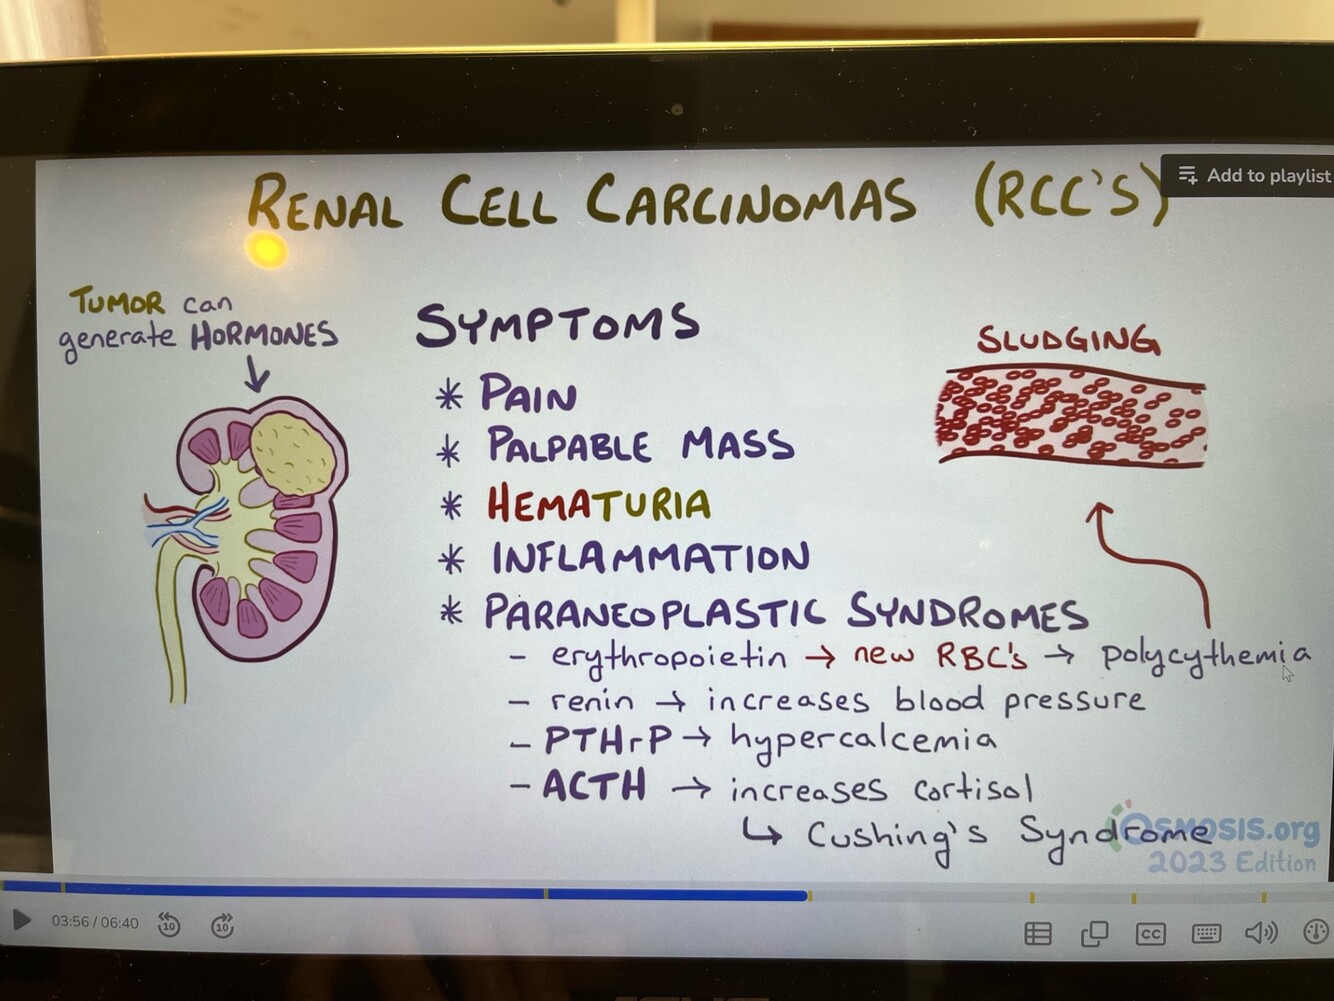 RENAL CELL CARCINOMAS (RCC'S)
Add to playlist
TUMOR can
generate HORMONES
SYMPTOMS
* PAIN
* PALPABLE MASS
* HEMATURIA
* INFLAMMATION
* PARANEOPLASTIC SYNDROMES
- erythropoietin → new RBC's → polycythemia
- renin → increases blood pressure
- PTHrP → hypercalcemia
- ACTH → increases cortisol
↳ Cushing's Syndrome
SLUDGING
OSMOSIS.org
2023 Edition
03:56 / 06:40
10
10
CC